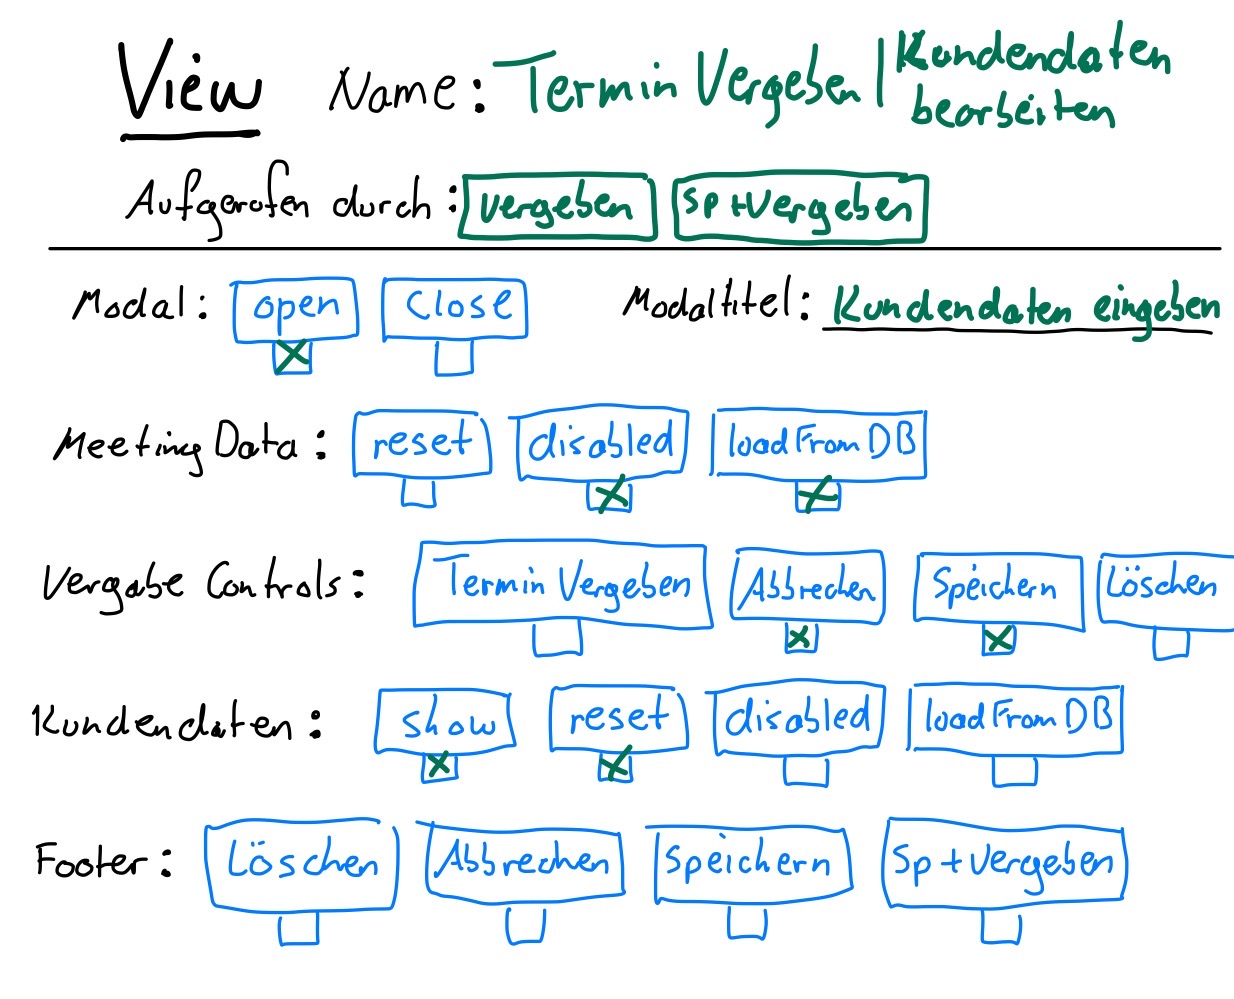 View Name: Termin Vergeben | Kundendaten
bearbeiten
Aufgerufen durch: vergeben Sp+Vergeben
Modal: open Close Modaltitel: Kundendaten eingeben
Meeting Data: reset disabled loadFromDB
Vergabe Controls: Termin Vergeben Abbrechen Speichern Löschen
Kundendaten: show reset disabled loadFromDB
Footer: Löschen Abbrechen Speichern Sp+Vergeben